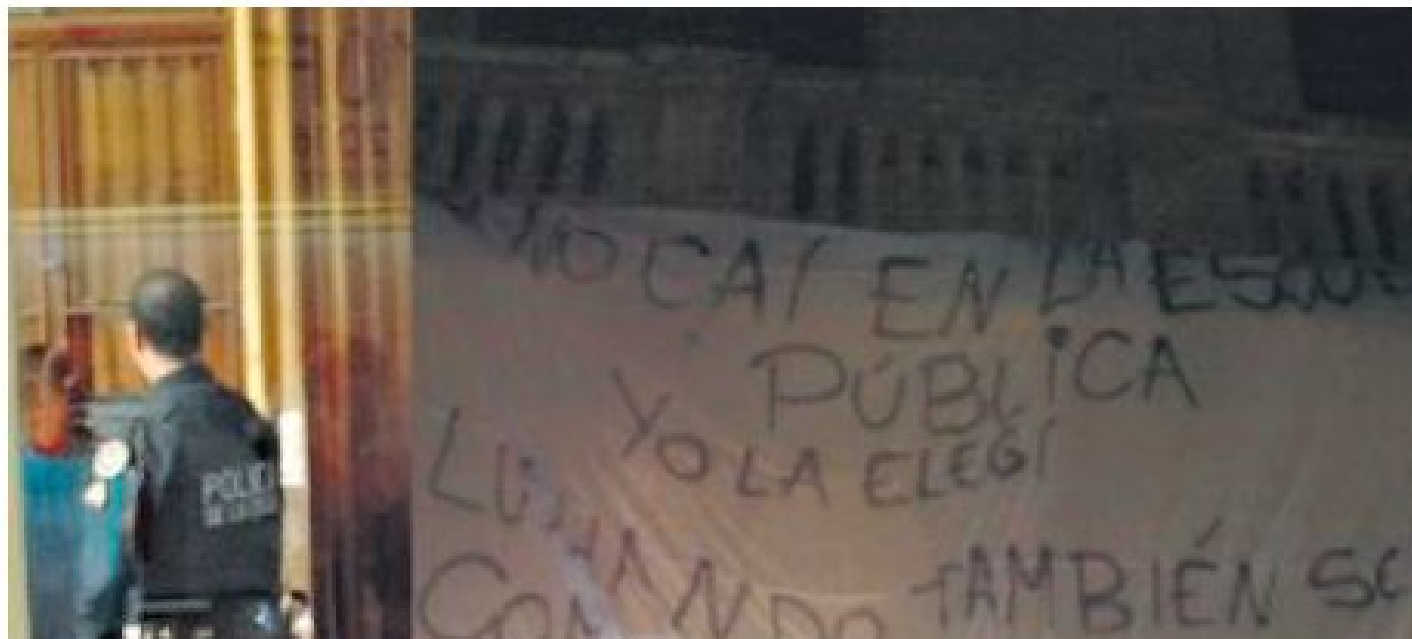 POLIC
DE LA CIU
YO NO CAÍ EN LA ESCUE
PÚBLICA
YO LA ELEGÍ
LUCHANDO TAMBIÉN SE